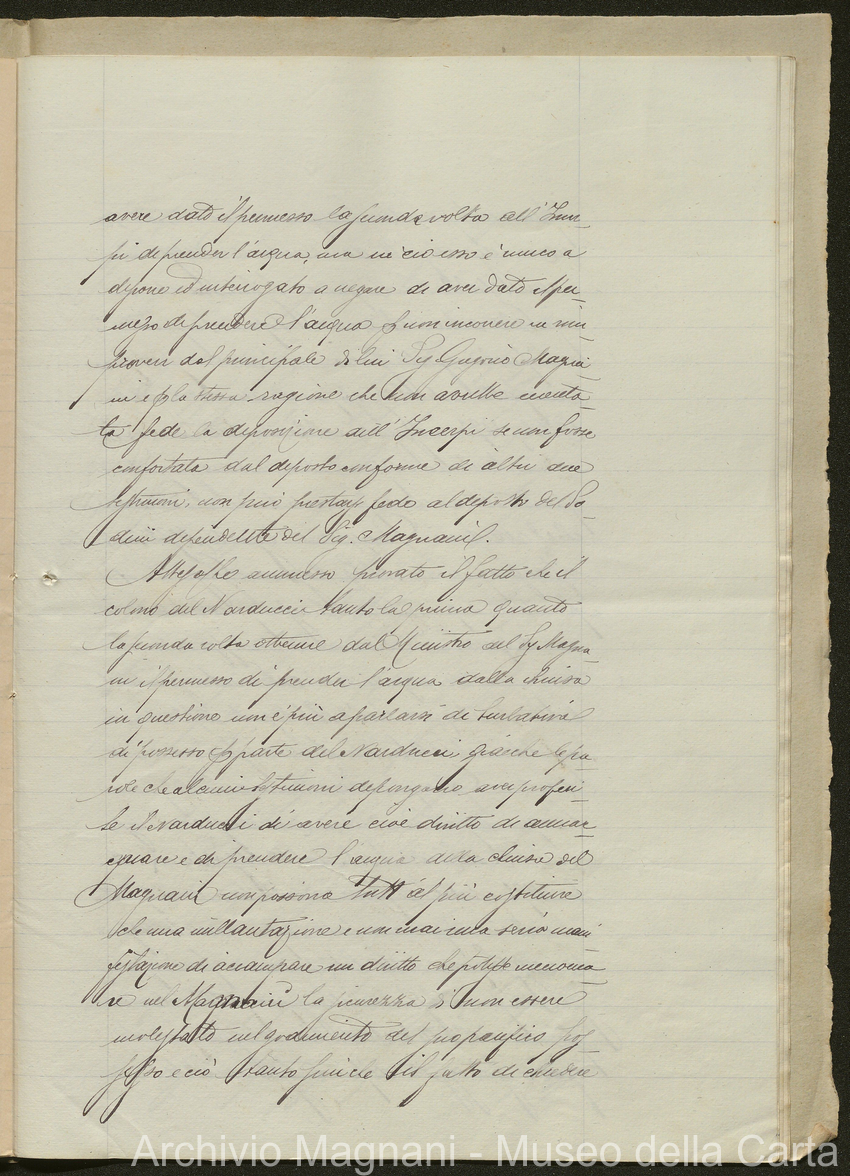 avere dato il permesso la seconda volta all'Incer-
pi di prender l'acqua, ma
deporre ed interrogato a negare di aver dato il per-
messo di prendere l'acqua p non incorrere in rim-
proveri dal principale di lui Sig Giogoio Magna
ni e p la stessa ragione che non avrebbe merita-
ta fede la deposizione dell'Incerpi se non fosse
confortata dal deposto conforme di altri due
testimoni, non può prestarsi fede al deposto del Pa-
dini dipendente del Sig. Magnani.
Attesoche ammesso provato il fatto che il
colono del Narducci tanto la prima quanto
la seconda volta ottenne dal Ministro del Sig Magna
ni il permesso di prender l'acqua dalla chiusa
in questione non è più a parlarsi di turbativa
di possesso p parte del Narducci giacchè le pa
role che alcuni testimoni depongano aver proferi-
te il Narducci di avere cioè diritto di annac
quare e di prendere l'acqua della chiusa del
Magnani non possono tutt'al più costituire
che una millantazione e non mai una seria mani
festazione di accampare un diritto che potesse menoma-
re nel Magnani la sicurezza di non essere
molestato nel godimento del suo pacifico pos-
sesso e ciò tanto più che il fatto di chiedere
Archivio Magnani - Museo della Carta